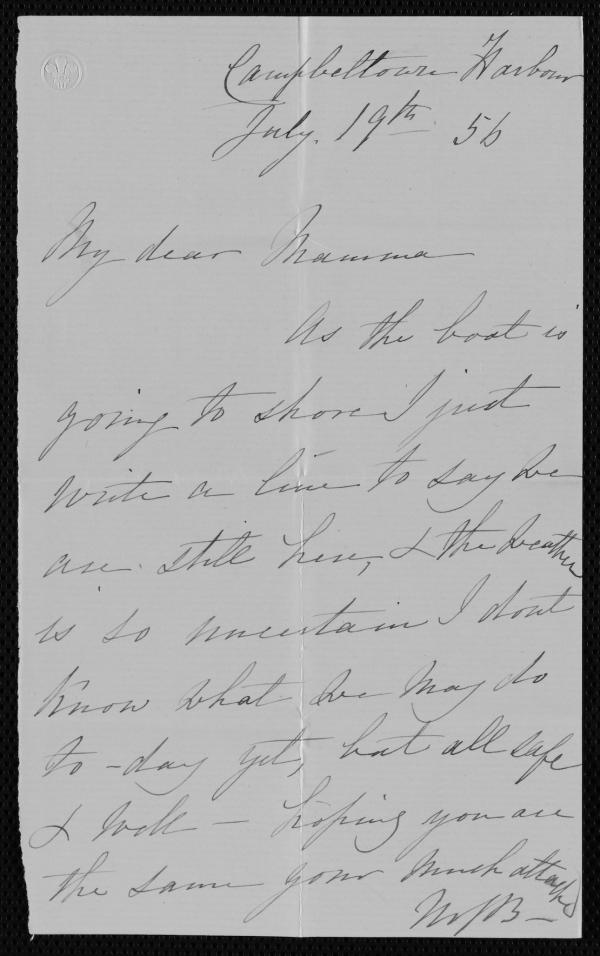 Campbeltown Harbour
July. 19th 56
My dear Mamma
As the boat is
going to shore I just
write a line to say we
are still here, & the weather
is so uncertain I dont
know what we may do
to-day yet, but all safe
& well — hoping you are
the same your much attached